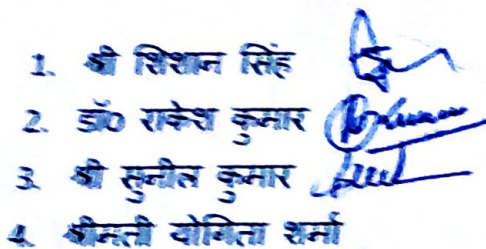 1. श्री शिशान सिंह
2. डॉ0 राकेश कुमार
3. श्री सुनील कुमार
4. श्रीमती योगिता शर्मा